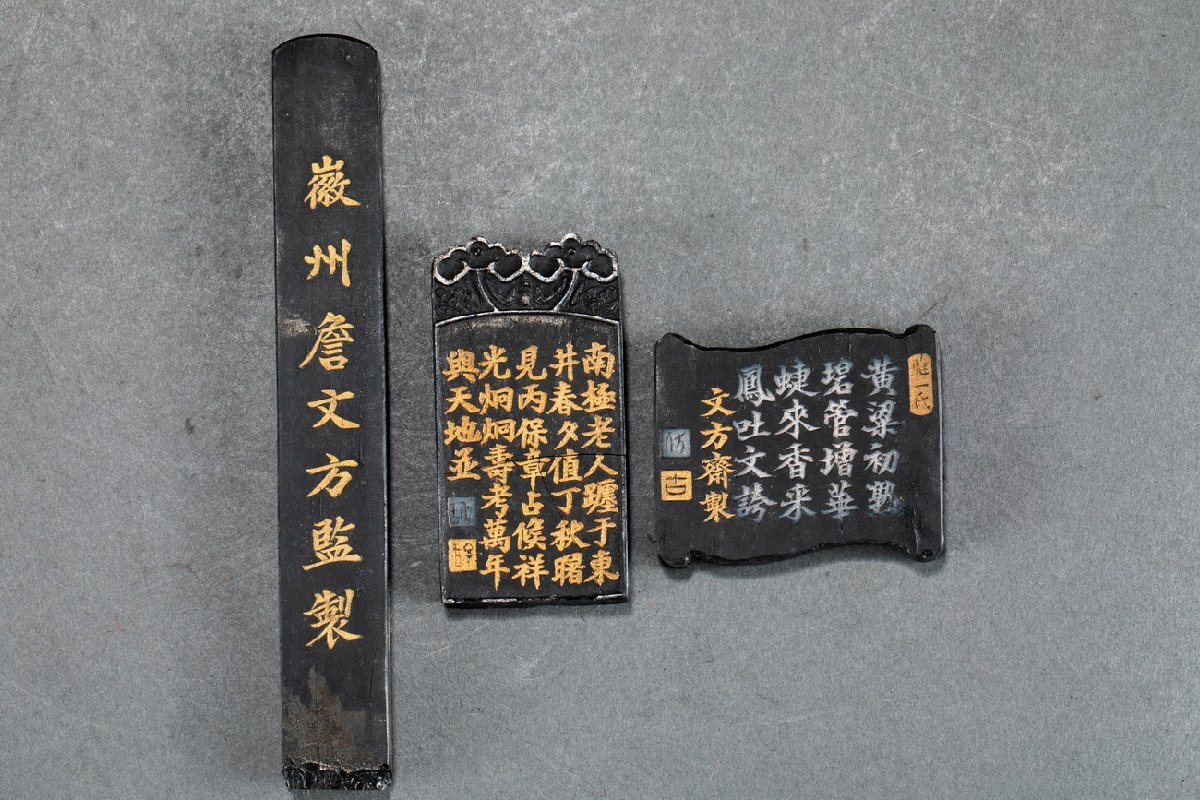 徽州詹文方監製
南極老人躔于東
井春夕值丁秋曙
見丙保章占候祥
光炯炯壽考萬年
與天地並
惟一氏
黄粱初熟
管增華
蜨來香采
鳳吐文誇
文方齋製
古